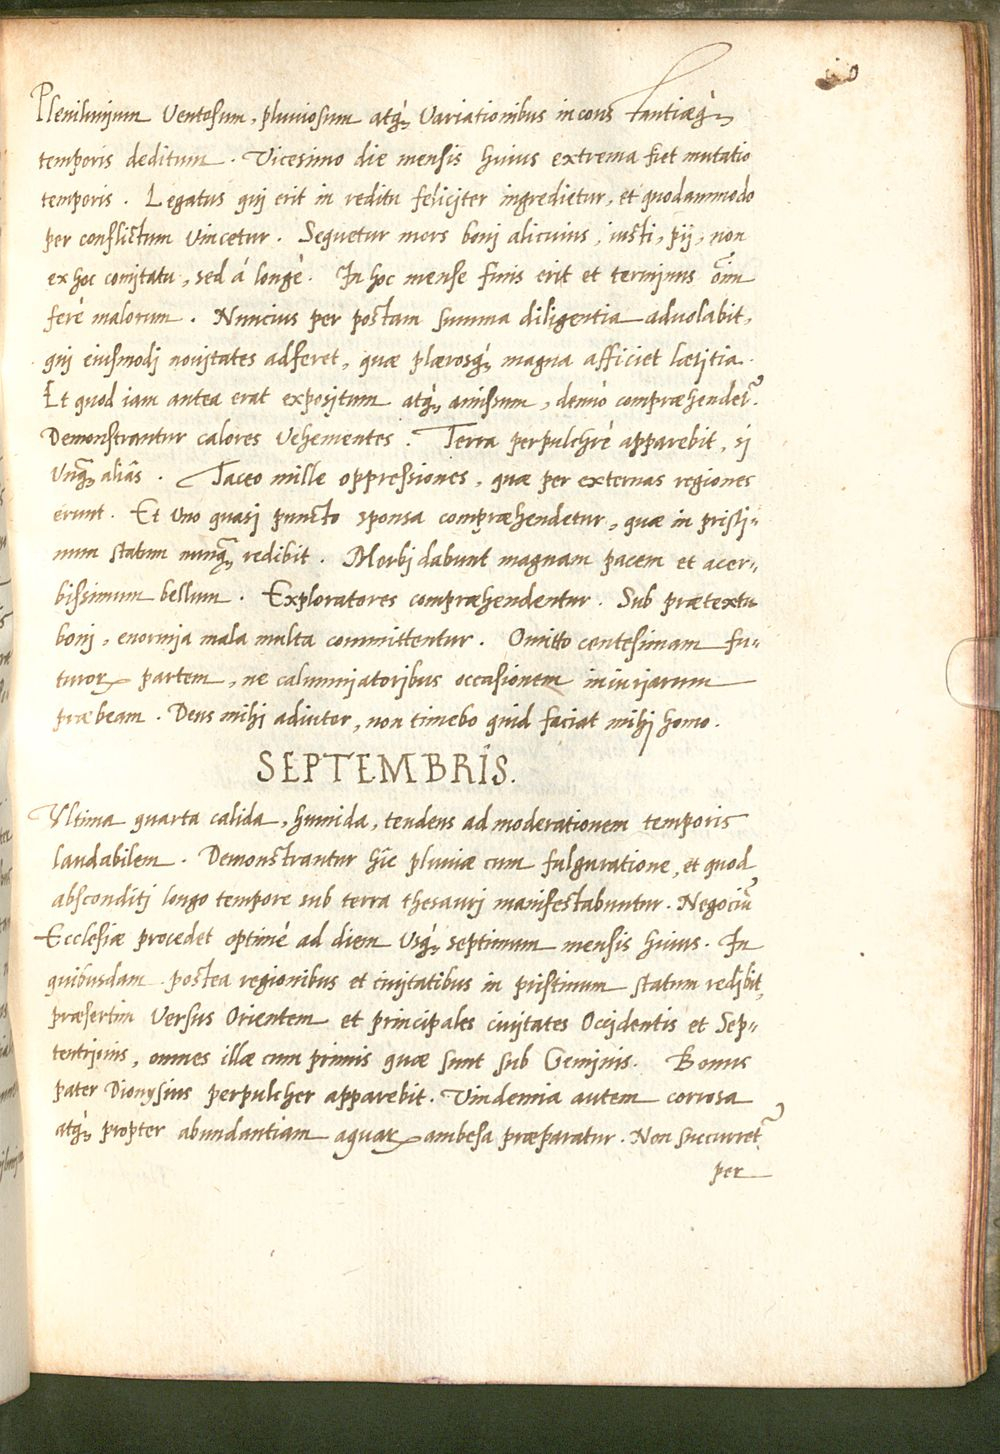 Plenilunium Ventosum, pluviosum atq́; Variationibus inconstantiæq́;
temporis deditum. Vicesimo die mensis huius extrema fiet mutatio
temporis. Legatus qui erit in reditu feliciter ingredietur, et quodammodo
per conflictum vincetur. Sequetur mors boni alicuius, iusti, pij, non
ex hoc comitatu, sed á longè. In hoc mense finis erit et terminus oĩm
ferè malorum. Nuncius per postam summa diligentia advolabit,
qui eiusmodi novitates adferet, quæ plærosq́; magna afficiet lætitia.
Et quod iam antea erat expositum atq́; amissum, denuò compræhendet̃.
Demonstrantur calores vehementes. Terra perpulchrè apparebit, si
Vnq̃; aliâs. Taceo mille oppressiones, quæ per externas regiones
erunt. Et uno quasi puncto sponsa compræhendetur, quæ in pristi=
num statum nunq̃; redibit. Morbi dabunt magnam pacem et acer=
bissimum bellum. Exploratores compræhendentur. Sub prætextu
boni, enormia mala multa committentur. Omitto centesimam fu=
turoꝝ partem, ne calumniatoribus occasionem iniuriarum
præbeam. Deus mihi adiutor, non timebo quid faciat mihi homo.
SEPTEMBRIS.
Vltima quarta calida, humida, tendens ad moderationem temporis
laudabilem. Demonstrantur hîc pluviæ cum fulguratione, et quod
absconditi longo tempore sub terra thesauri manifestabuntur. Negociũ
Ecclesiæ procedet optimè ad diem Usq́; septimum mensis huius. In
quibusdam postea regionibus et civitatibus in pristinum statum redibit,
præsertim versus Orientem et principales civitates Occidentis et Sep=
tentrionis, omnes illæ cum primis quæ sunt sub Geminis. Bonus
pater Dionysius perpulcher apparebit. Vindemia autem corrosa
atq́; propter abundantiam aquaꝝ ambesa præparatur. Non succurret̃
per